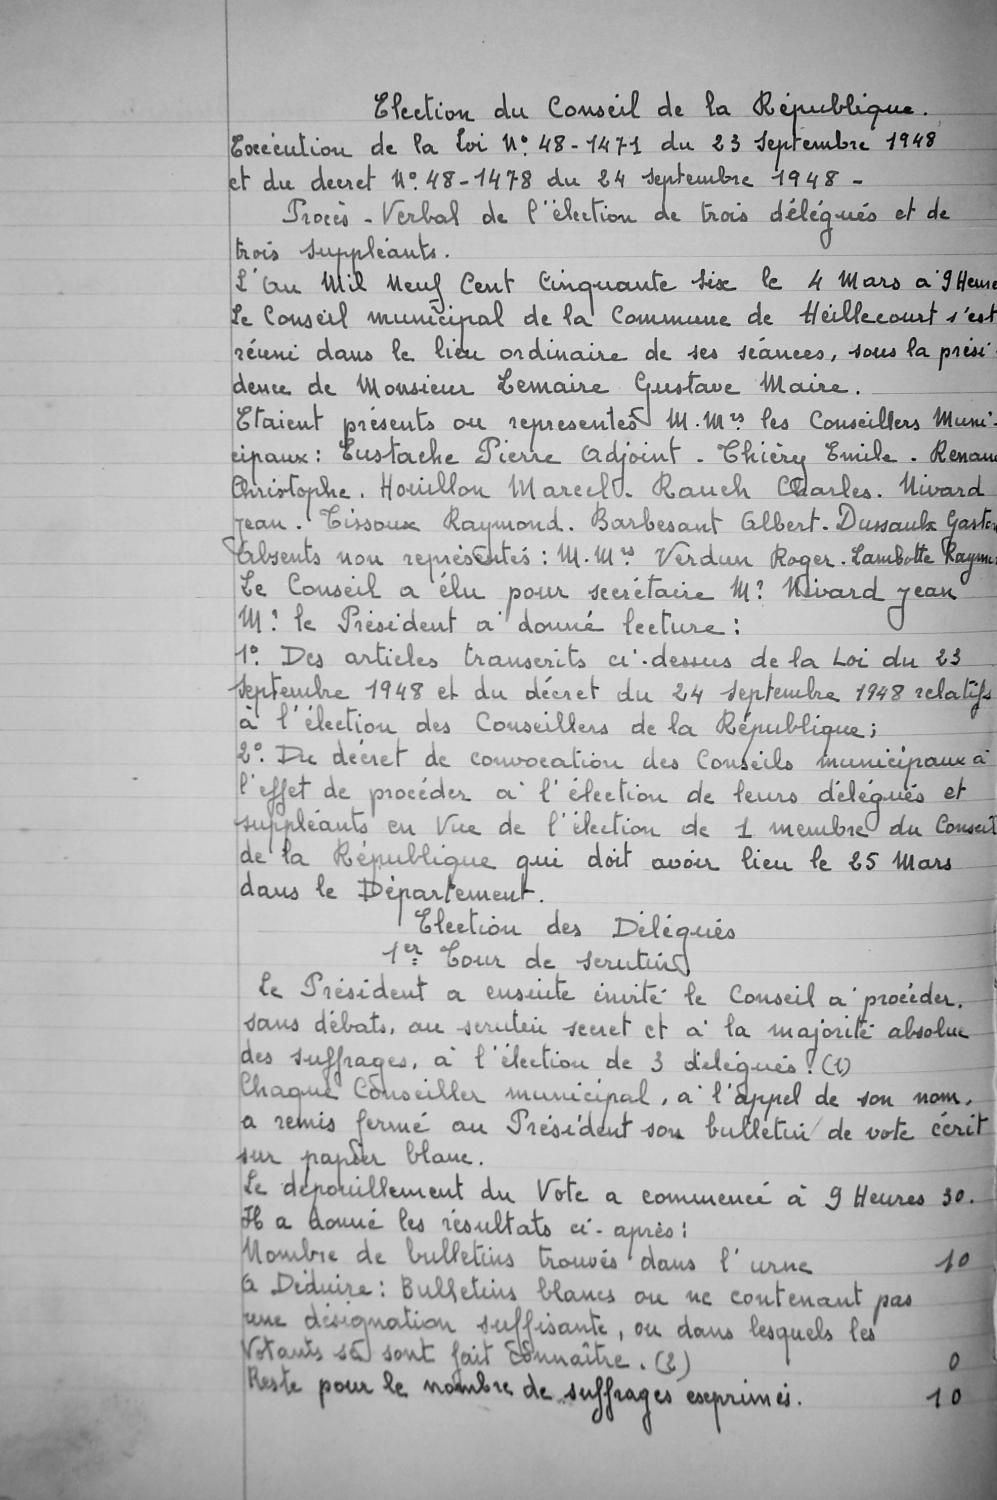 Election du Conseil de la République.
Exécution de la Loi N° 48-1471 du 23 Septembre 1948
et du decret N° 48-1478 du 24 septembre 1948 -
Procès-Verbal de l'élection de trois délégués et de
trois suppléants.
L'an Mil Neuf Cent Cinquante Six le 4 Mars à 9 Heure
Le Conseil municipal de la Commune de Heillecourt s'est
réuni dans le lieu ordinaire de ses séances, sous la prési-
dence de Monsieur Lemaire Gustave Maire.
Etaient présents ou representés M.Mrs les Conseillers Muni-
cipaux : Eustache Pierre Adjoint - Thiéry Emile . Renau
Christophe . Houillon Marcel - Rauch Charles . Nivard
Jean . Tissoux Raymond . Barbesant Albert - Dussaulx Gaston
Absents non représentés : M.Mrs Verdun Roger . Lambotte Raym
Le Conseil a élu pour secrétaire Mr Nivard Jean
Mr le Président a donné lecture :
1° Des articles transcrits ci-dessus de la Loi du 23
septembre 1948 et du décret du 24 septembre 1948 relatifs
à l'élection des Conseillers de la République ;
2° Du décret de convocation des Conseils municipaux à
l'effet de procéder à l'élection de leurs délégués et
suppléants en Vue de l'élection de 1 membre du Conseil
de la République qui doit avoir lieu le 25 Mars
dans le Département.
Election des Délégués
1er Tour de scrutin
Le Président a ensuite invité le Conseil à procéder,
sans débats, au scrutin secret et à la majorité absolue
des suffrages, à l'élection de 3 délégués. (1)
Chaque Conseiller municipal, à l'appel de son nom,
a remis fermé au Président son bulletin de vote écrit
sur papier blanc.
Le dépouillement du Vote a commencé à 9 Heures 30.
Il a donné les résultats ci-après :
Nombre de bulletins trouvés dans l'urne 10
A Déduire : Bulletins blancs ou ne contenant pas
une désignation suffisante, ou dans lesquels les
Votants se sont fait connaître. (2) 0
Reste pour le nombre de suffrages exprimés. 10